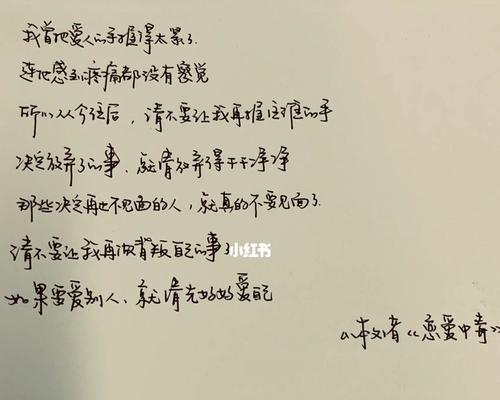 我曾把爱人的手握得太紧了.
连他感到疼痛都没有察觉
所以从今往后,请不要让我再握住谁的手
决定放弃了的事、就请放弃得干干净净
那些决定再也不见面的人,就真的不要见面了.
请不要让我再做背叛自己的事了
如果要爱别人、就请先好好爱自己
小红书
山本文绪《恋爱中毒》